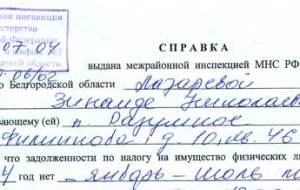 ная инспекция
стерства
Федерации
07.04
ской области
СПРАВКА
выдана межрайонной инспекцией МНС РФ
о Белгородской области Лазаревой
Зинаиде Николаев
вающему (ей) п. Разумное
д. 10, кв. 46
что задолженности по налогу на имущество физических л
4 год нет - январь - июль